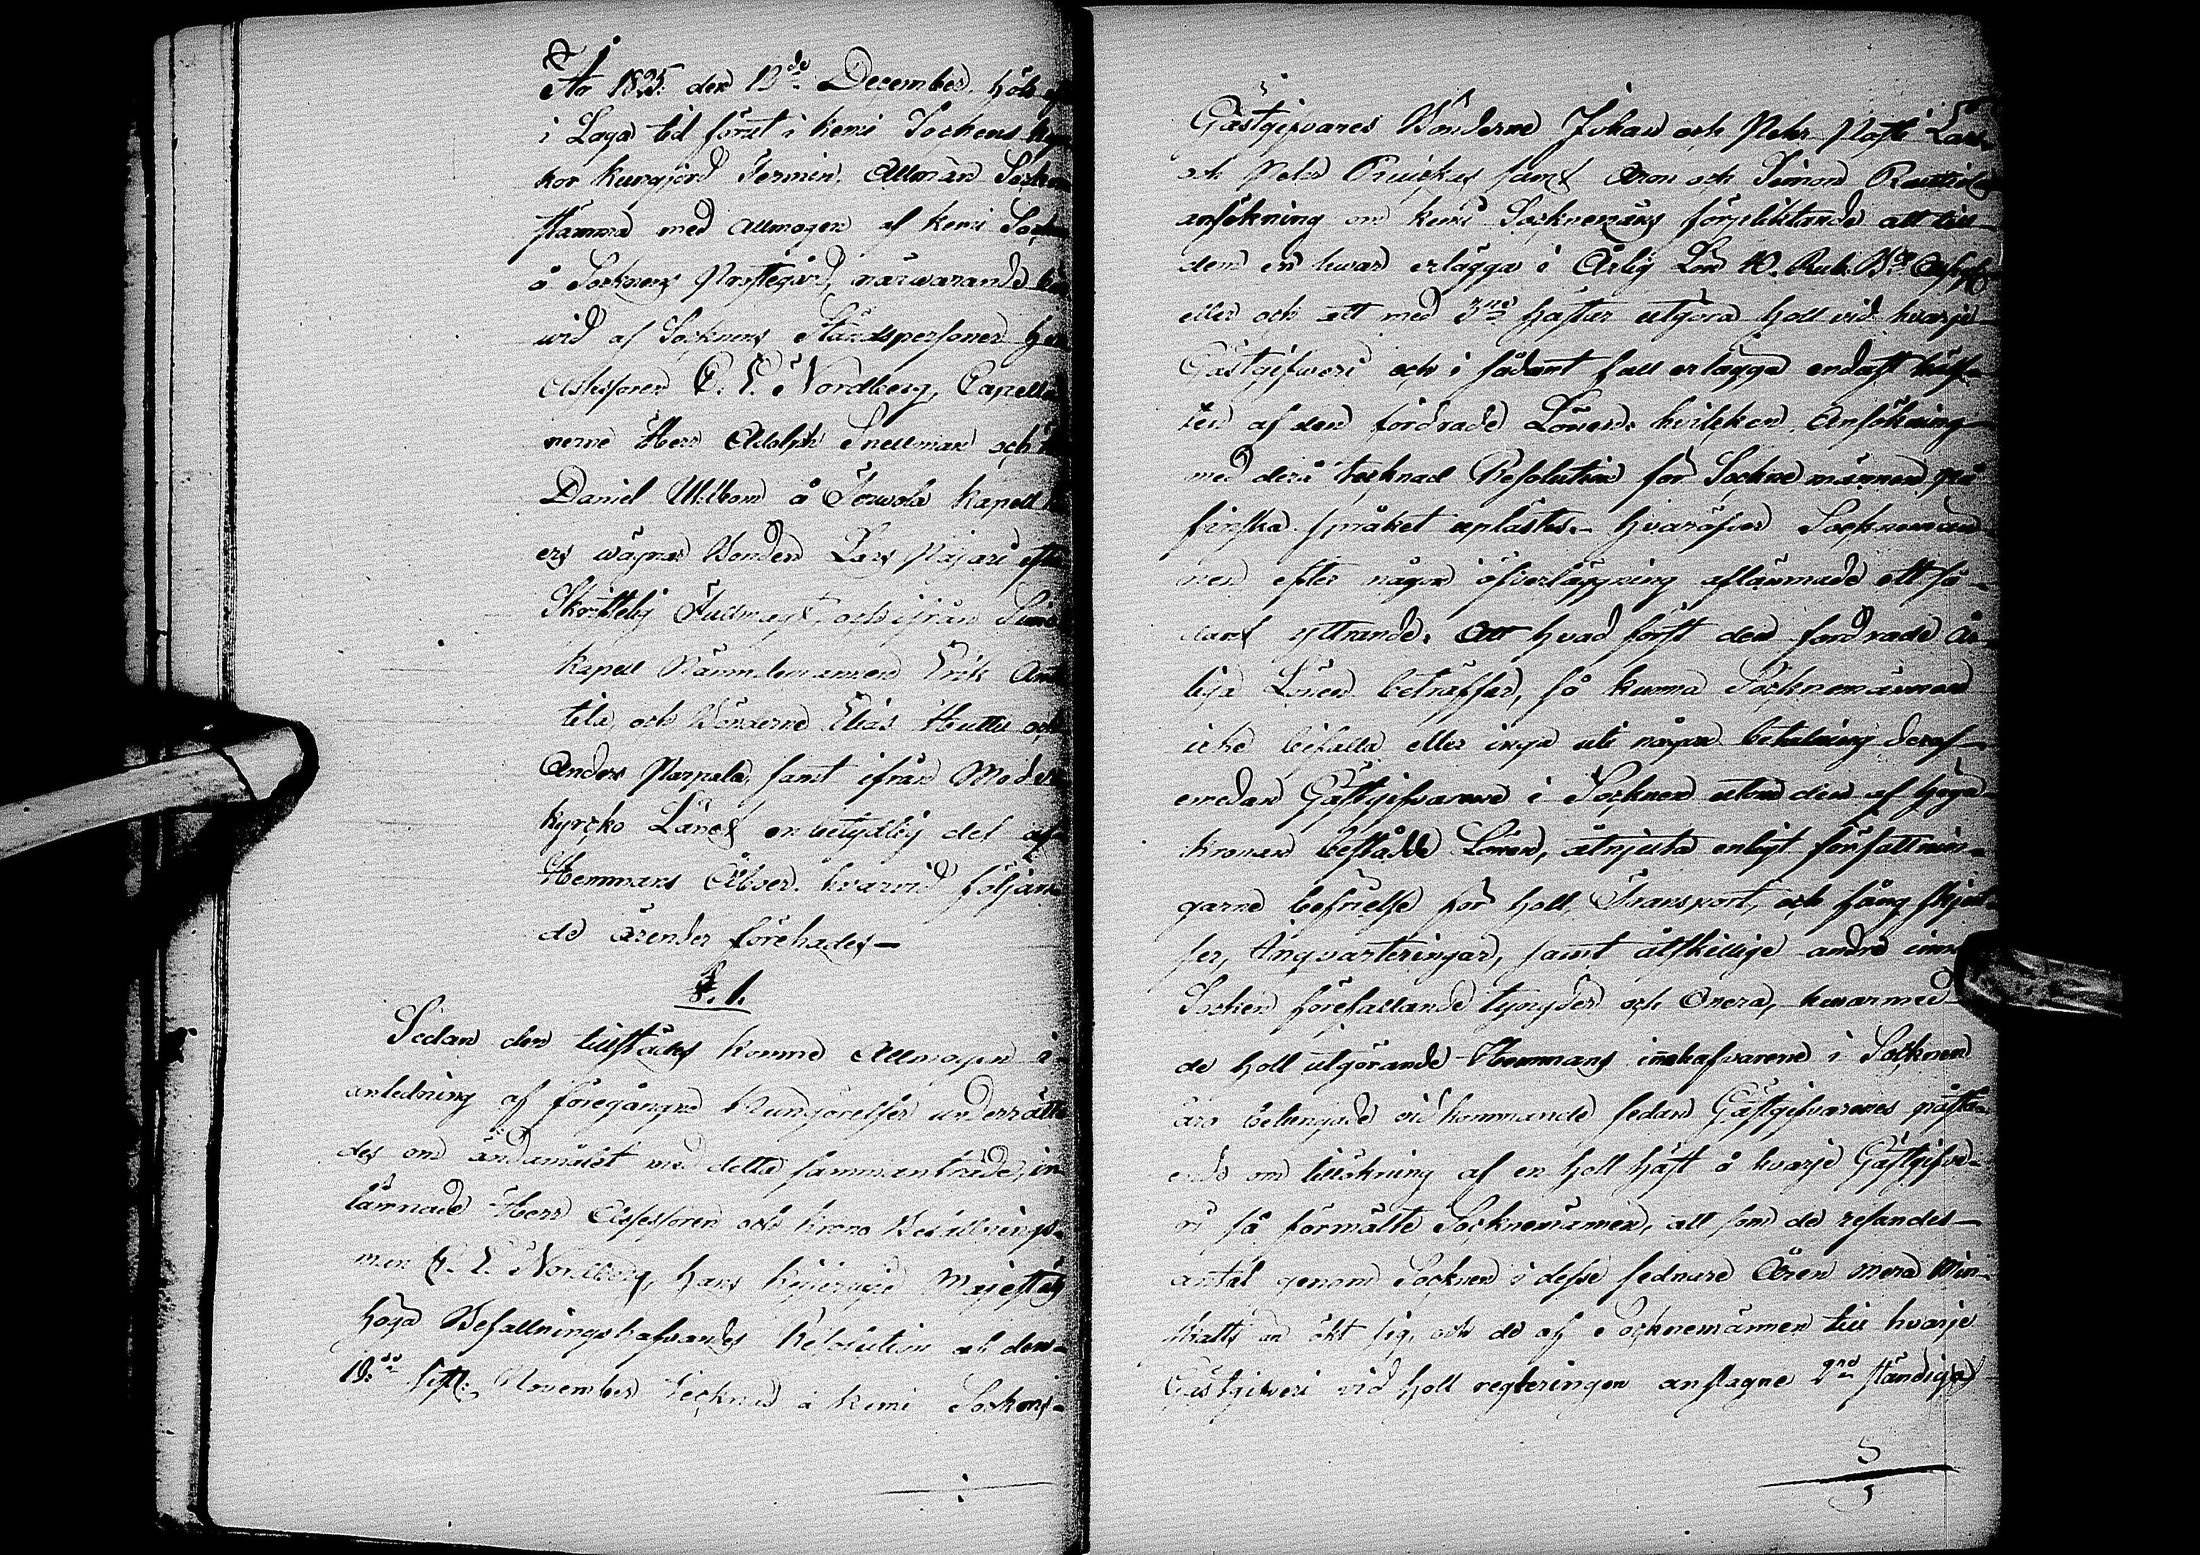 År 1825. den 13de December, höls
i Laga tid förut i Kemi Sockens kyr
kor kungjord Termin, Allmän Socken
stämma med allmogen af Kemi Socken
å Socknens Prästegård, närwarande här
wid af Socknens Ståndspersoner Herr
Assessoren E. E. Nordberg, Capella
nerne Herr Adolph Snellman och
Daniel Ullbom å Terwola Kapell
ers wägnar Bonden Lars Pajari efter
Skriftelig Fullmagt, och ifrån Simo
Kapell Nämndemannen Erik Ant
tila, och Bönderne Elias Huttu och
Anders Parpala, samt ifrån Moder
kyrcko Länet en betydlig del af
Hemmans Åboer. hvarvid följan
de ärender förehades—
§. 1.
Sedan den tillstädes komne Allmogen i
anledning af föregångne Kungörelser underrätta
des om ändamålet med detta sammanträde, in
lämnade Herr Assessoren och Krono Befallnings-
man E. E. Nordberg, Hans Kejserliga Majestäts
Höga Befallningshafvandes Resolution af den
19de sistl: November tecknad å Kemi Sockens
Gästgifvares Bönderne Johan och Petter Lars
och Petter Ruickas samt Aron och Simon Rautio
ansökning om Kemi Socknemäns förpliktande att till
dem en hvar erlägga i Årlig Lön 40. Rub. Bco Assign
eller och att med 3ne hästar utgöra holl vid hvarje
Gästgifveri och i sådant fall erlägga endast hälf-
ten af den fordrade Lönen; hvilken Ansökning
med derå tecknad Resolution för Sockne männen på
finska språket uplästes.— hvaröfver Socknemän
nen efter någon öfverläggning aflämnade ett så-
dant yttrande: att hvad först den fordrade År-
liga Lönen beträffar, så kunna Socknemännen
icke bifalla eller ingå uti någon betalning deraf
emedan Gästgifvarene i Socknen utom den af Höga
Kronan bestådde Lönen, åtnjuta enligt författnin-
garne befrielse för holl, Transport, och fång skjut
ser, Inqvarteringar, samt åtskillige andre inne
Socken förefallande tyngder och Onera, hvarmed
de holl utgörande Hemmans innehafvarene i Socknen
äro betungade vidkommande sedan Gästgifvarenes påstå
ende om tillökning af en holl häst å hvarje Gästgifve-
ri så förmälte Socknemännen, att som de resandes
antal genom Socknen i desse sednare Åren mera min-
skatts än ökt sig, och de af Socknemännen till hvarje
Gästgifveri vid holl regleringen anslagne 2ne ständiga